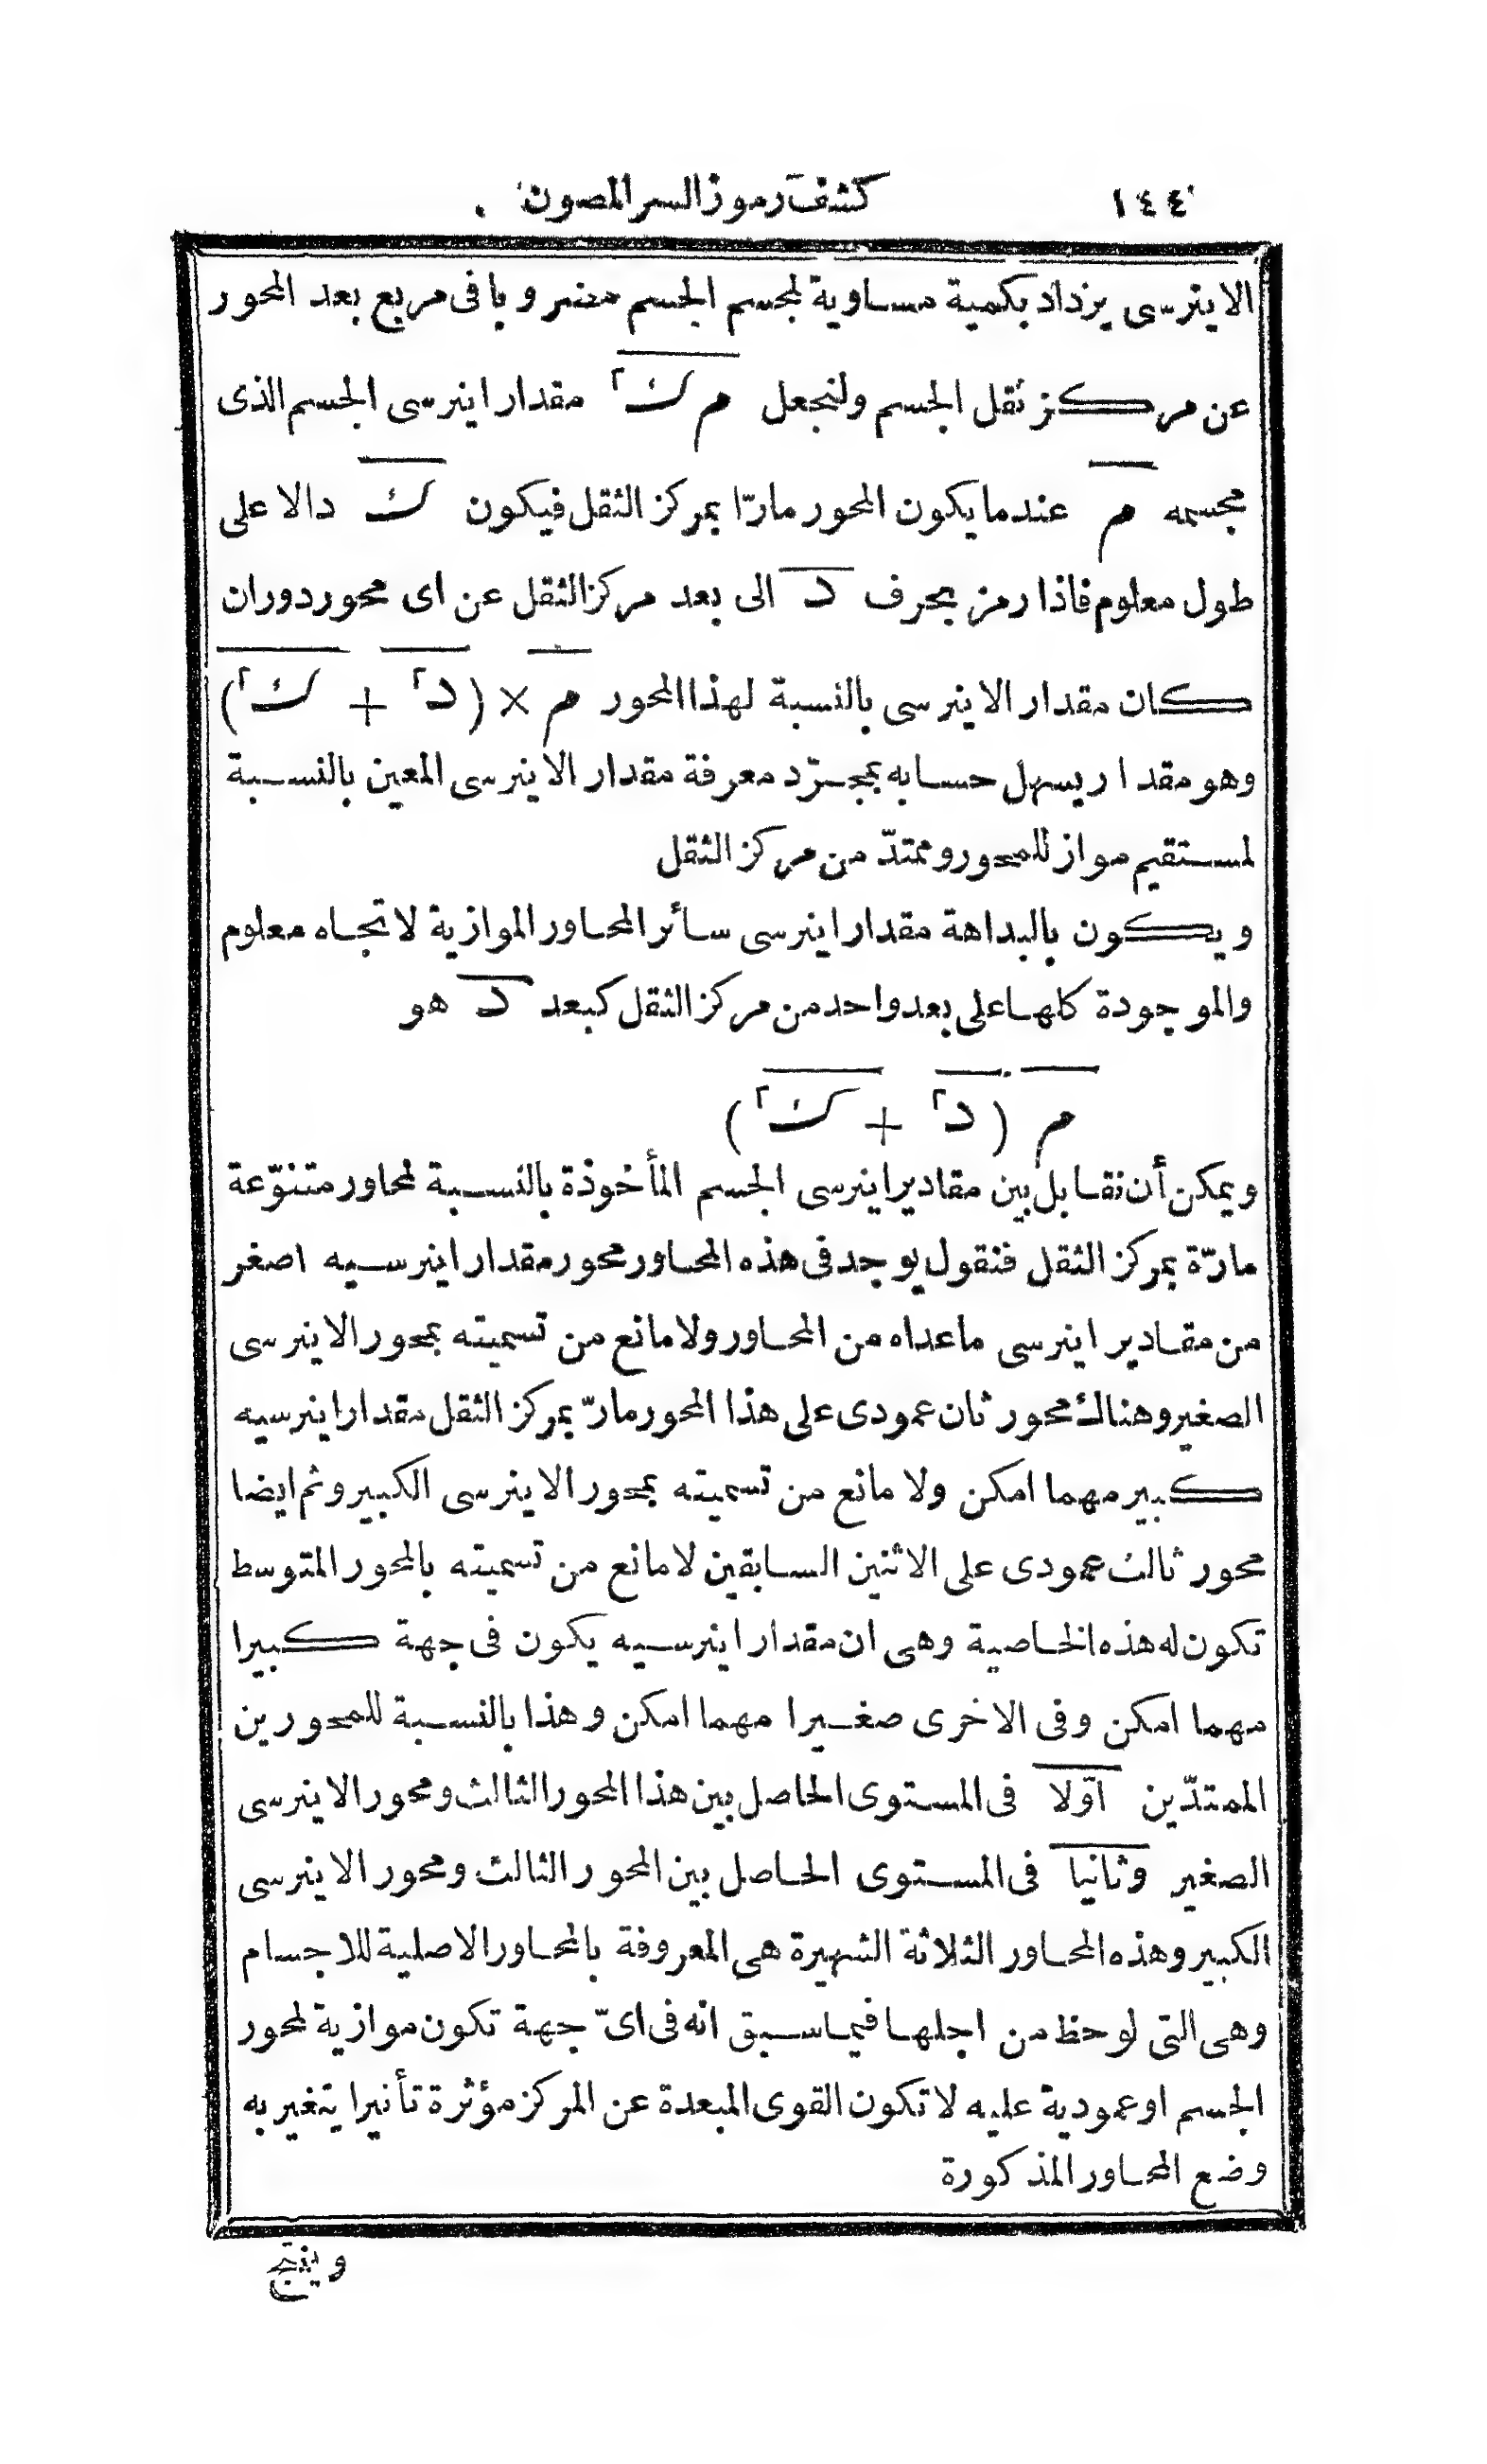 ١٤٤ كشف رموز السر المصون
الاينرسى يزداد بكمية مساوية لمجسم الجسم مضروبا فى مربع بعد المحور
عن مركز ثقل الجسم ولنجعل م ك٢ مقدار اينرسى الجسم الذى
مجسمه م عندما يكون المحور مارّا بمركز الثقل فيكون ك دالا على
طول معلوم فاذا رمز بحرف د الى بعد مركز الثقل عن اى محور دوران
كان مقدار الاينرسى بالنسبة لهذا المحور م × (د٢ + ك٢)
وهو مقدار يسهل حسابه بمجرّد معرفة مقدار الاينرسى المعين بالنسبة
لمستقيم مواز للمحور وممتدّ من مركز الثقل
ويكون بالبداهة مقدار اينرسى سائر المحاور الموازية لاتجاه معلوم
والموجودة كلها على بعد واحد من مركز الثقل كبعد د هو
م (د٢ + ك٢)
ويمكن أن نقابل بين مقادير اينرسى الجسم المأخوذة بالنسبة لمحاور متنوّعة
مارّة بمركز الثقل فنقول يوجد فى هذه المحاور محور مقدار اينرسيه اصغر
من مقادير اينرسى ماعداه من المحاور ولا مانع من تسميته بمحور الاينرسى
الصغير وهناك محور ثان عمودى على هذا المحور مارّ بمركز الثقل مقدار اينرسيه
كبير مهما امكن ولا مانع من تسميته بمحور الاينرسى الكبير وثم ايضا
محور ثالث عمودى على الاثنين السابقين لا مانع من تسميته بالمحور المتوسط
تكون له هذه الخاصية وهى ان مقدار اينرسيه يكون فى جهة كبيرا
مهما امكن وفى الاخرى صغيرا مهما امكن وهذا بالنسبة للمحورين
الممتدّين اوّلا فى المستوى الحاصل بين هذا المحور الثالث ومحور الاينرسى
الصغير وثانيا فى المستوى الحاصل بين المحور الثالث ومحور الاينرسى
الكبير وهذه المحاور الثلاثة الشهيرة هى المعروفة بالمحاور الاصلية للاجسام
وهى التى لوحظ من اجلها فيما سبق انه فى اىّ جهة تكون موازية لمحور
الجسم او عمودية عليه لا تكون القوى المبعدة عن المركز مؤثرة تأثيرا يتغير به
وضع المحاور المذكورة
وينتج